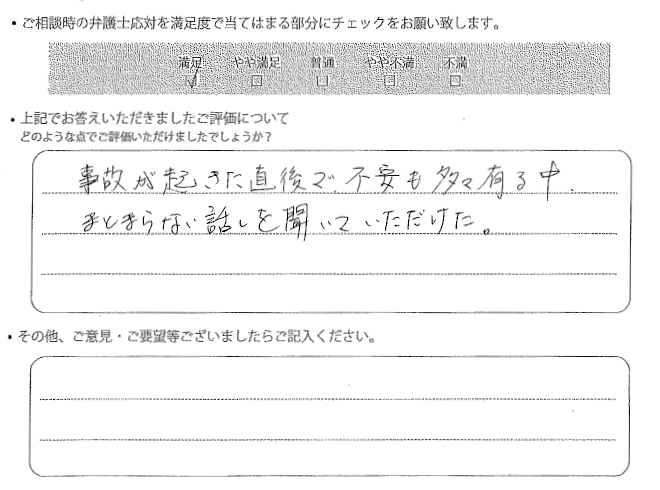 • ご相談時の弁護士応対を満足度で当てはまる部分にチェックをお願い致します。
満足 やや満足 普通 やや不満 不満
• 上記でお答えいただきましたご評価について
どのような点でご評価いただけましたでしょうか?
事故が起きた直後で、不安も多々有る中、
まとまらない話しを聞いていただけた。
• その他、ご意見・ご要望等ございましたらご記入ください。